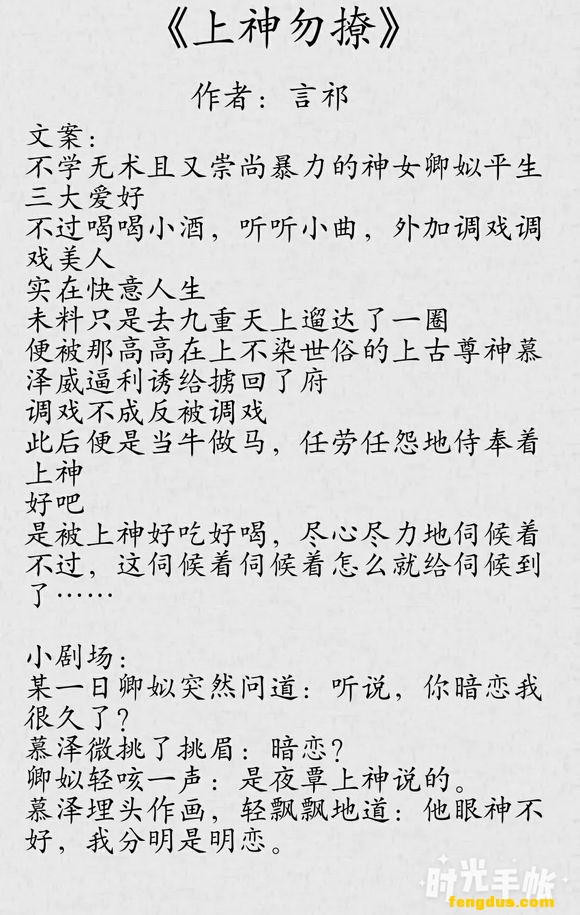 《上神勿撩》
作者：言祁
文案：
不学无术且又崇尚暴力的神女卿姒平生
三大爱好
不过喝喝小酒，听听小曲，外加调戏调
戏美人
实在快意人生
未料只是去九重天上遛达了一圈
便被那高高在上不染世俗的上古尊神慕
泽威逼利诱给掳回了府
调戏不成反被调戏
此后便是当牛做马，任劳任怨地侍奉着
上神
好吧
是被上神好吃好喝，尽心尽力地伺候着
不过，这伺候着伺候着怎么就给伺候到
了……
小剧场：
某一日卿姒突然问道：听说，你暗恋我
很久了？
慕泽微挑了挑眉：暗恋？
卿姒轻咳一声：是夜覃上神说的。
慕泽埋头作画，轻飘飘地道：他眼神不
好，我分明是明恋。
时光手帐
fengdus.com